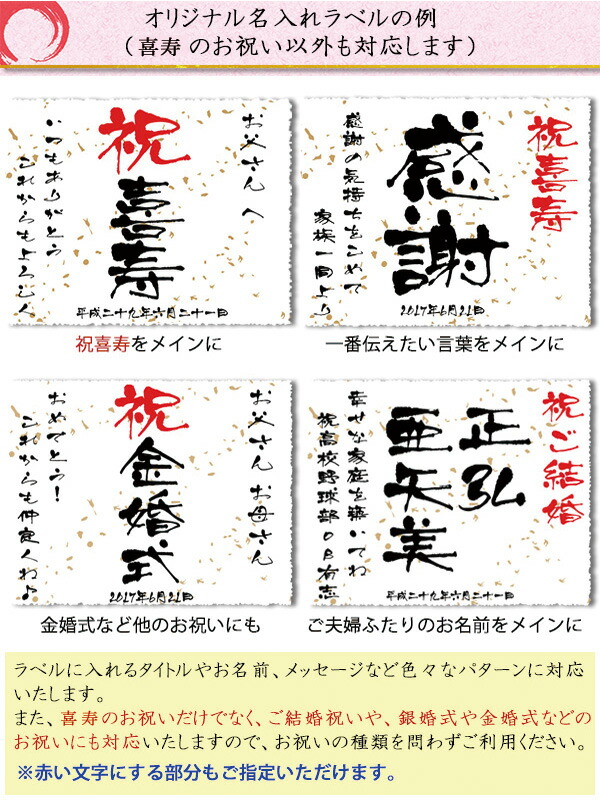 オリジナル名入れラベルの例
(喜寿のお祝い以外も対応します)
お父さんへ
祝
喜寿
いつもありがとう
これからもよろしく
平成二十九年六月二十一日
祝喜寿をメインに
祝喜寿
感謝
感謝の気持ちをこめて
家族一同より
2017年6月21日
一番伝えたい言葉をメインに
お父さん お母さん
祝
金婚式
おめでとう!
これからも仲良くね♪
2017年6月21日
金婚式など他のお祝いにも
祝ご結婚
正弘
亜矢美
幸せな家庭を築いてね
祝高校野球部OB有志
平成二十九年六月二十一日
ご夫婦ふたりのお名前をメインに
ラベルに入れるタイトルやお名前、メッセージなど色々なパターンに対応
いたします。
また、喜寿のお祝いだけでなく、ご結婚祝いや、銀婚式や金婚式などの
お祝いにも対応いたしますので、お祝いの種類を問わずご利用ください。
※赤い文字にする部分もご指定いただけます。